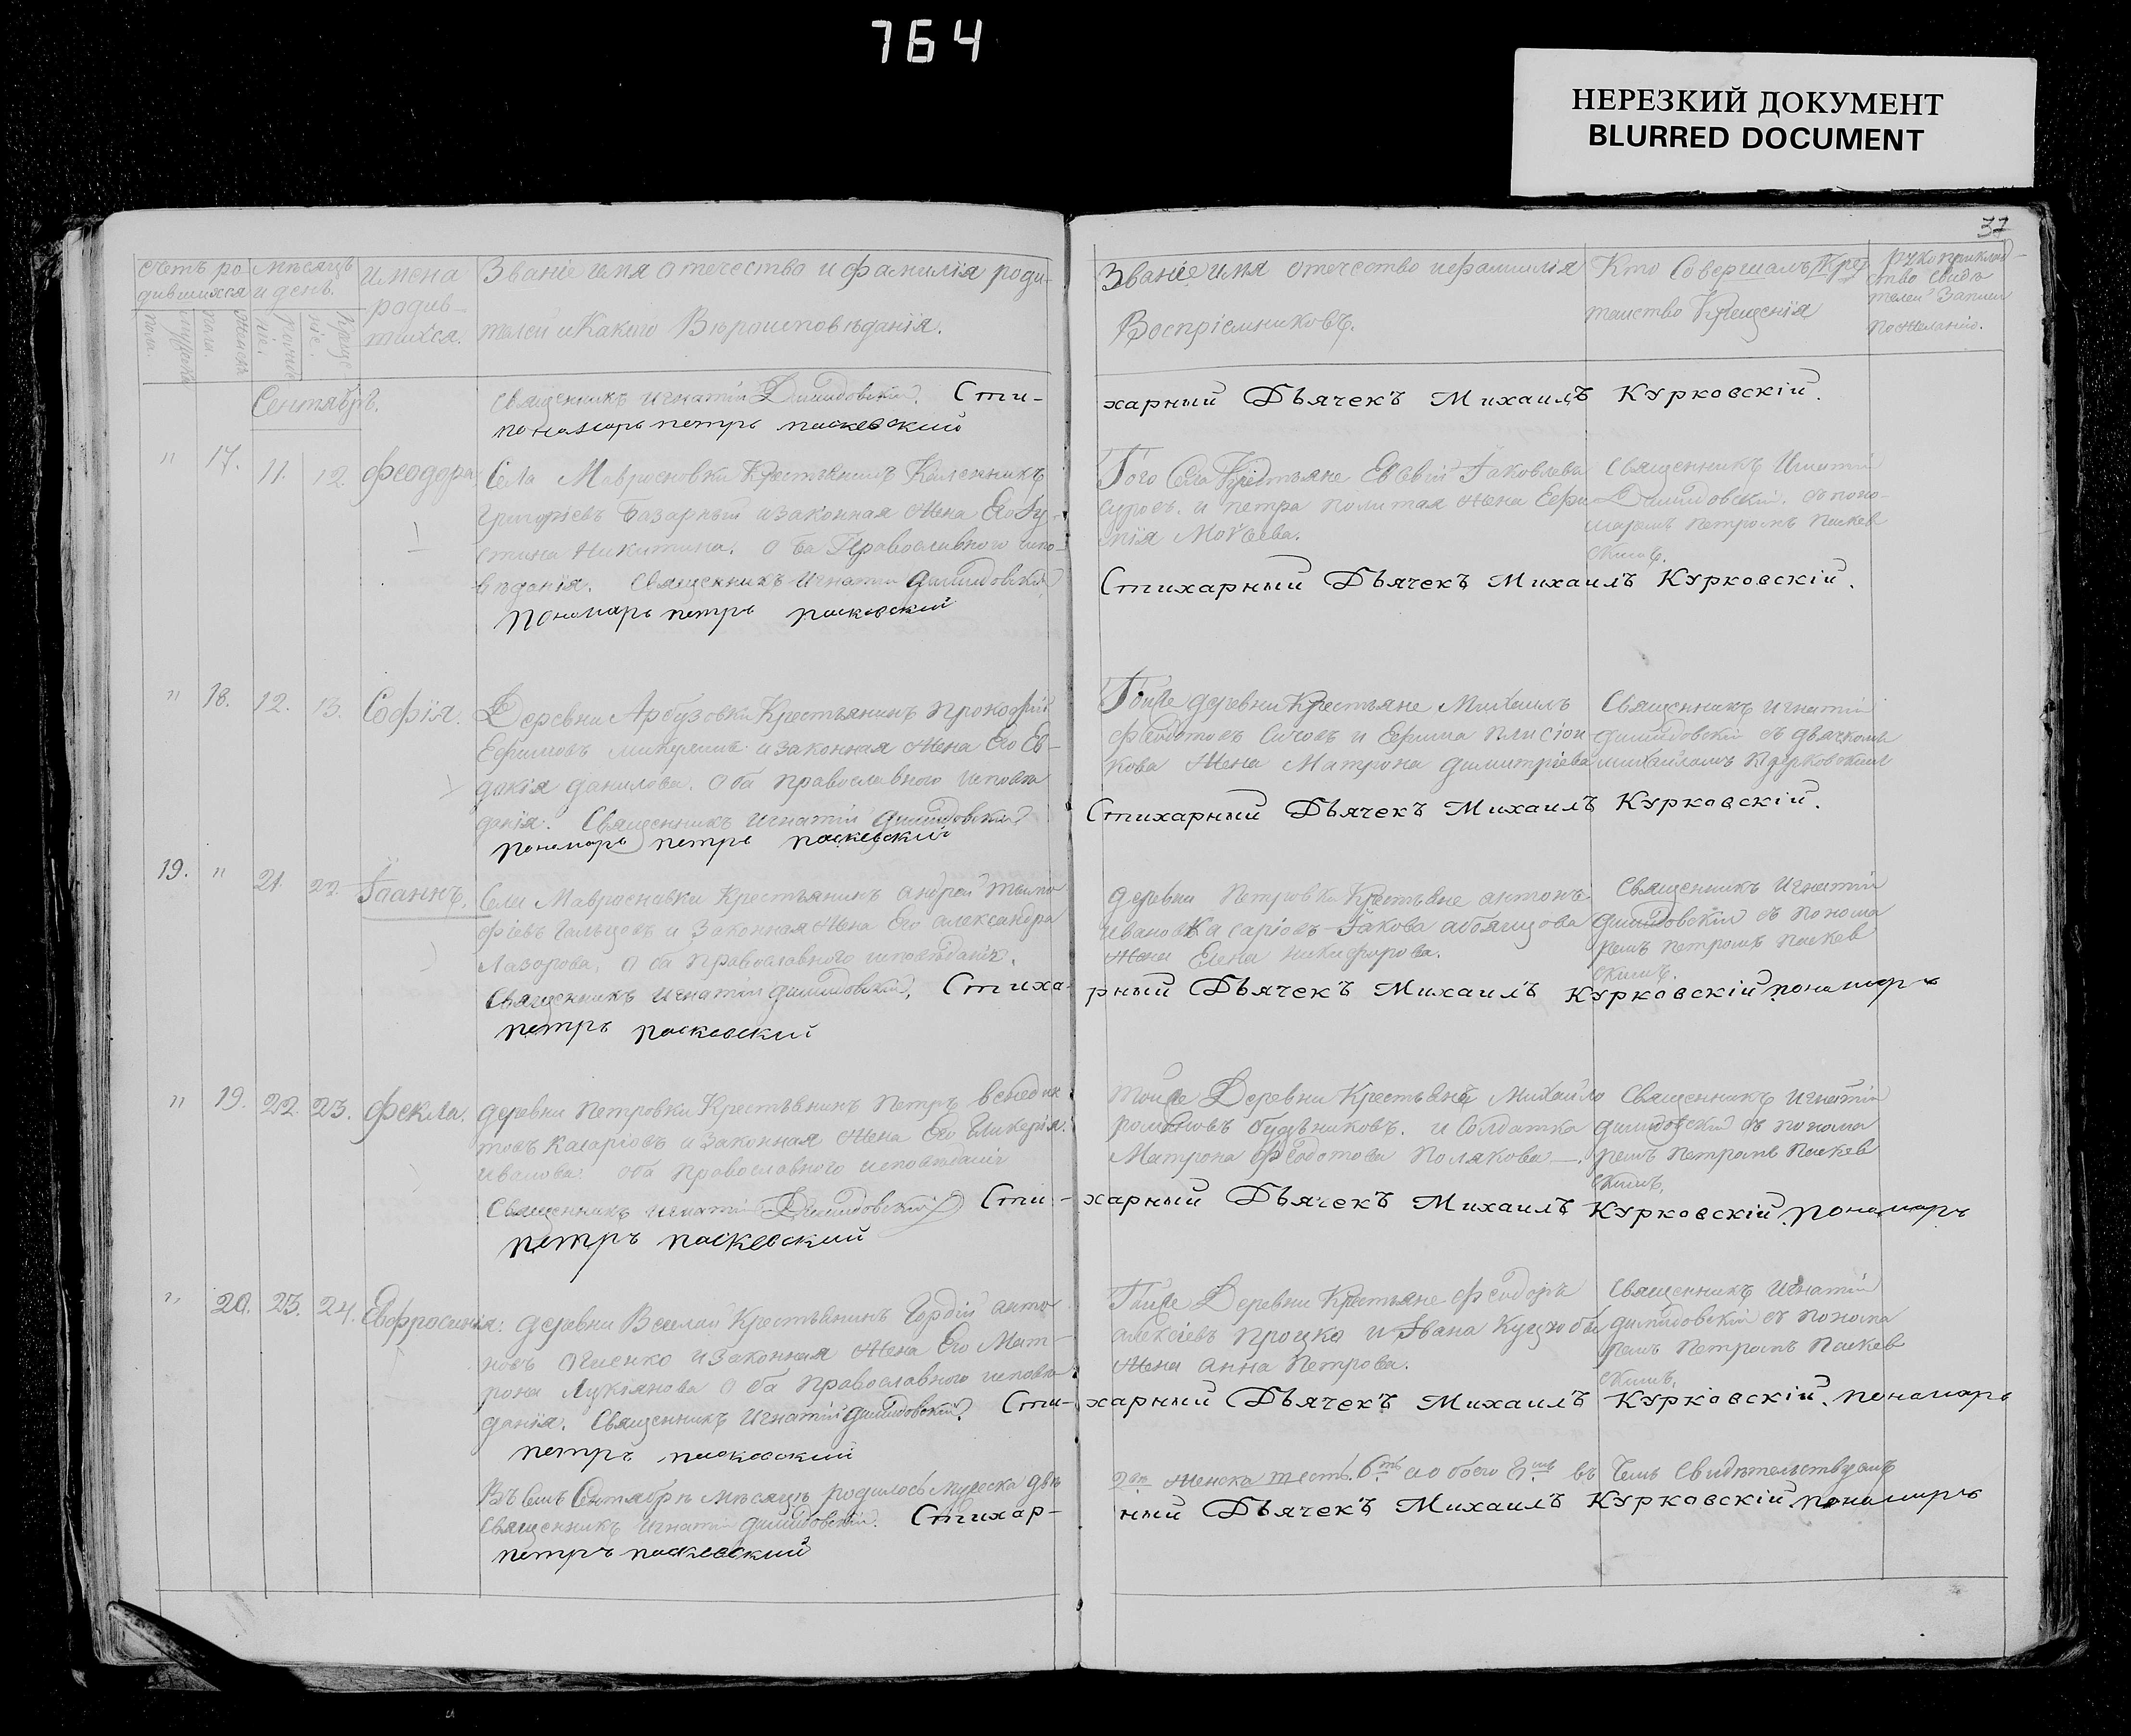 764
НЕРЕЗКИЙ ДОКУМЕНТ
BLURRED DOCUMENT
37
Счетъ ро
дившихся
мѣсяцъ
и день.
Имена
родив-
шихся.
Званіе имя отечество и фамилія роди-
телей и Какого Вѣроисповѣданія.
Званіе имя отечество и фамилія
Воспріемниковъ.
Кто Совершалъ
таинство Крещенія
рукоприклад-
ство Свидѣ
телей Записи
по желанію.
Сентябрь.
Священникъ Игнатій Димидовскій. Сти-
харный Дьячекъ Михаилъ Курковскій.
пономарь петръ паскевский
" 17. 11. 12. Феодора
Села Мавросновки Крестьянинъ
Григорьевъ Базарный и законная Жена Его Іу-
стина Никитина. Оба Православнаго испо-
вѣданія. Священникъ Игнатій Димидовскій
пономарь петръ паскевский
Того Села Крестьяне Евсевій Іаковлевъ
и петра жена Евфи
мія Моѵсеева.
Священникъ Игнатій
Димидовскій съ поно-
маремъ петромъ паскев
скимъ.
Стихарный Дьячекъ Михаилъ Курковскій.
" 18. 12. 13. Софія.
Деревни Арбузовки Крестьянинъ Прокофій
Ефимовъ и законная Жена Его Ев-
докія Данилова. Оба православного исповѣ
данія. Священникъ Игнатій Димидовскій
пономарь петръ паскевский
Тойже деревни Крестьяне Михаилъ
Феодотовъ и Ефима
кова Жена Матрона димитріева
Священникъ Игнатій
димидовскій съ дьячкомъ
михаиломъ Курковскимъ
Стихарный Дьячекъ Михаилъ Курковскій.
19. " 21. 22. Іоаннъ.
Села Мавросновки Крестьянинъ андрей тимо
фіевъ Гальцовъ и Законная Жена Его александра
Лазорова. Оба православного исповѣданія.
Священникъ Игнатій димидовскій. Стиха-
рный Дьячекъ Михаилъ Курковскій пономарь
петръ паскевский
деревни Петровки Крестьяне антонъ
ивановъ Касаріовъ Іакова
Жена Елена никифорова.
Священникъ Игнатій
димидовскій съ понома
ремъ петромъ паскев
скимъ.
" 19. 22. 23. Фекла.
деревни петровки Крестьянинъ петръ венедик
товъ Касаріовъ и законная Жена Его Гликерія
иванова. оба православного исповѣданія
Священникъ Игнатій Димидовскій Сти-
харный Дьячекъ Михаилъ Курковскій пономарь
петръ паскевский
тойже Деревни Крестьяне Михайло
романовъ будьниковъ. и Солдатка
Матрона Феодотова Полякова.
Священникъ Игнатій
димидовскій съ понома
ремъ петромъ паскев
скимъ.
" 20. 23. 24. Евфросинія.
деревни Веселой Крестьянинъ Гордій анто
новъ Огиенко и законная Жена Его Мат-
рона Лукіянова Оба православного исповѣ-
данія. Священникъ Игнатій димидовскій. Сти-
харный Дьячекъ Михаилъ Курковскій. пономарь
петръ паскевский
Тойже Деревни Крестьяне Феодоръ
алексіевъ Процко и Ивана
Жена анна Петрова.
Священникъ Игнатій
димидовскій съ понома
ремъ Петромъ Паскев
скимъ.
Въ Семъ Сентябрѣ мѣсяцѣ родилось мужеска два
2. женска шесть. 6. а обоего 8. въ чемъ Свидѣтельствуемъ
Священникъ Игнатій димидовскій. Стихар-
ный Дьячекъ Михаилъ Курковскій пономарь
петръ паскевский